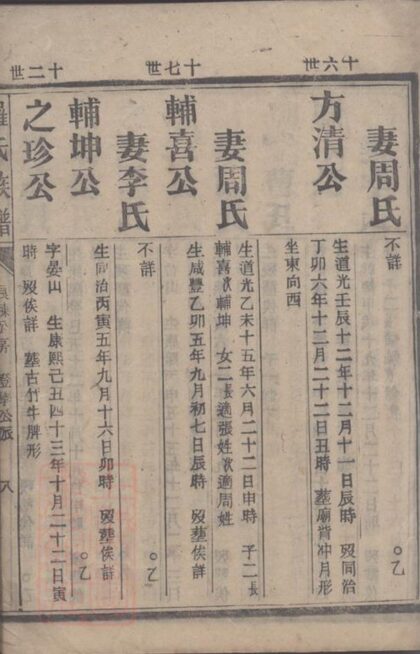 十六世
十七世
十二世
妻周氏
不詳
方清公
生道光壬辰十二年十二月十一日辰時 歿同治
丁卯六年十二月二十二日丑時 墓廟背冲月形
坐東向西
妻周氏
生道光乙未十五年六月二十二日申時 子二長
輔喜次輔坤 女二長適張姓次適周姓
輔喜公
生咸豐乙卯五年九月初七日辰時 歿葬俟詳
○乙
妻李氏
不詳
輔坤公
生同治丙寅五年九月十六日卯時 歿葬俟詳
○乙
之珍公
字晏山 生康熙己丑四十三年十月二十二日寅
時 歿俟詳 墓古竹牛脾形
羅氏族譜
公派 八